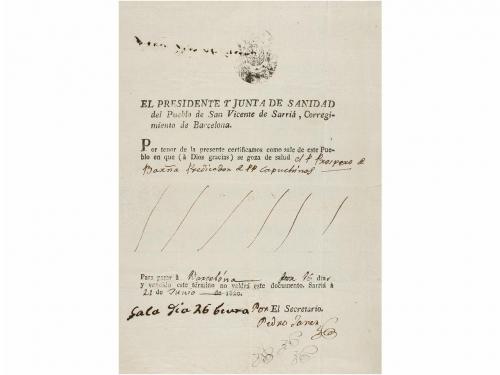 EL PRESIDENTE Y JUNTA DE SANIDAD
del Pueblo de San Vicente de Sarriá, Corregi-
miento de Barcelona.
Por tenor de la presente certificamos como sale de este Pue-
blo en que (à Dios gracias) se goza de salud el P. Prospero de
Barña Predicador de PP. Capuchinos
Para pasar à Barcelona por 16 dias
y vencido este término no valdrá este documento. Sarriá à
21 de Junio de 1820.
Sala Dia 26
Por El Secretario.
Pedro